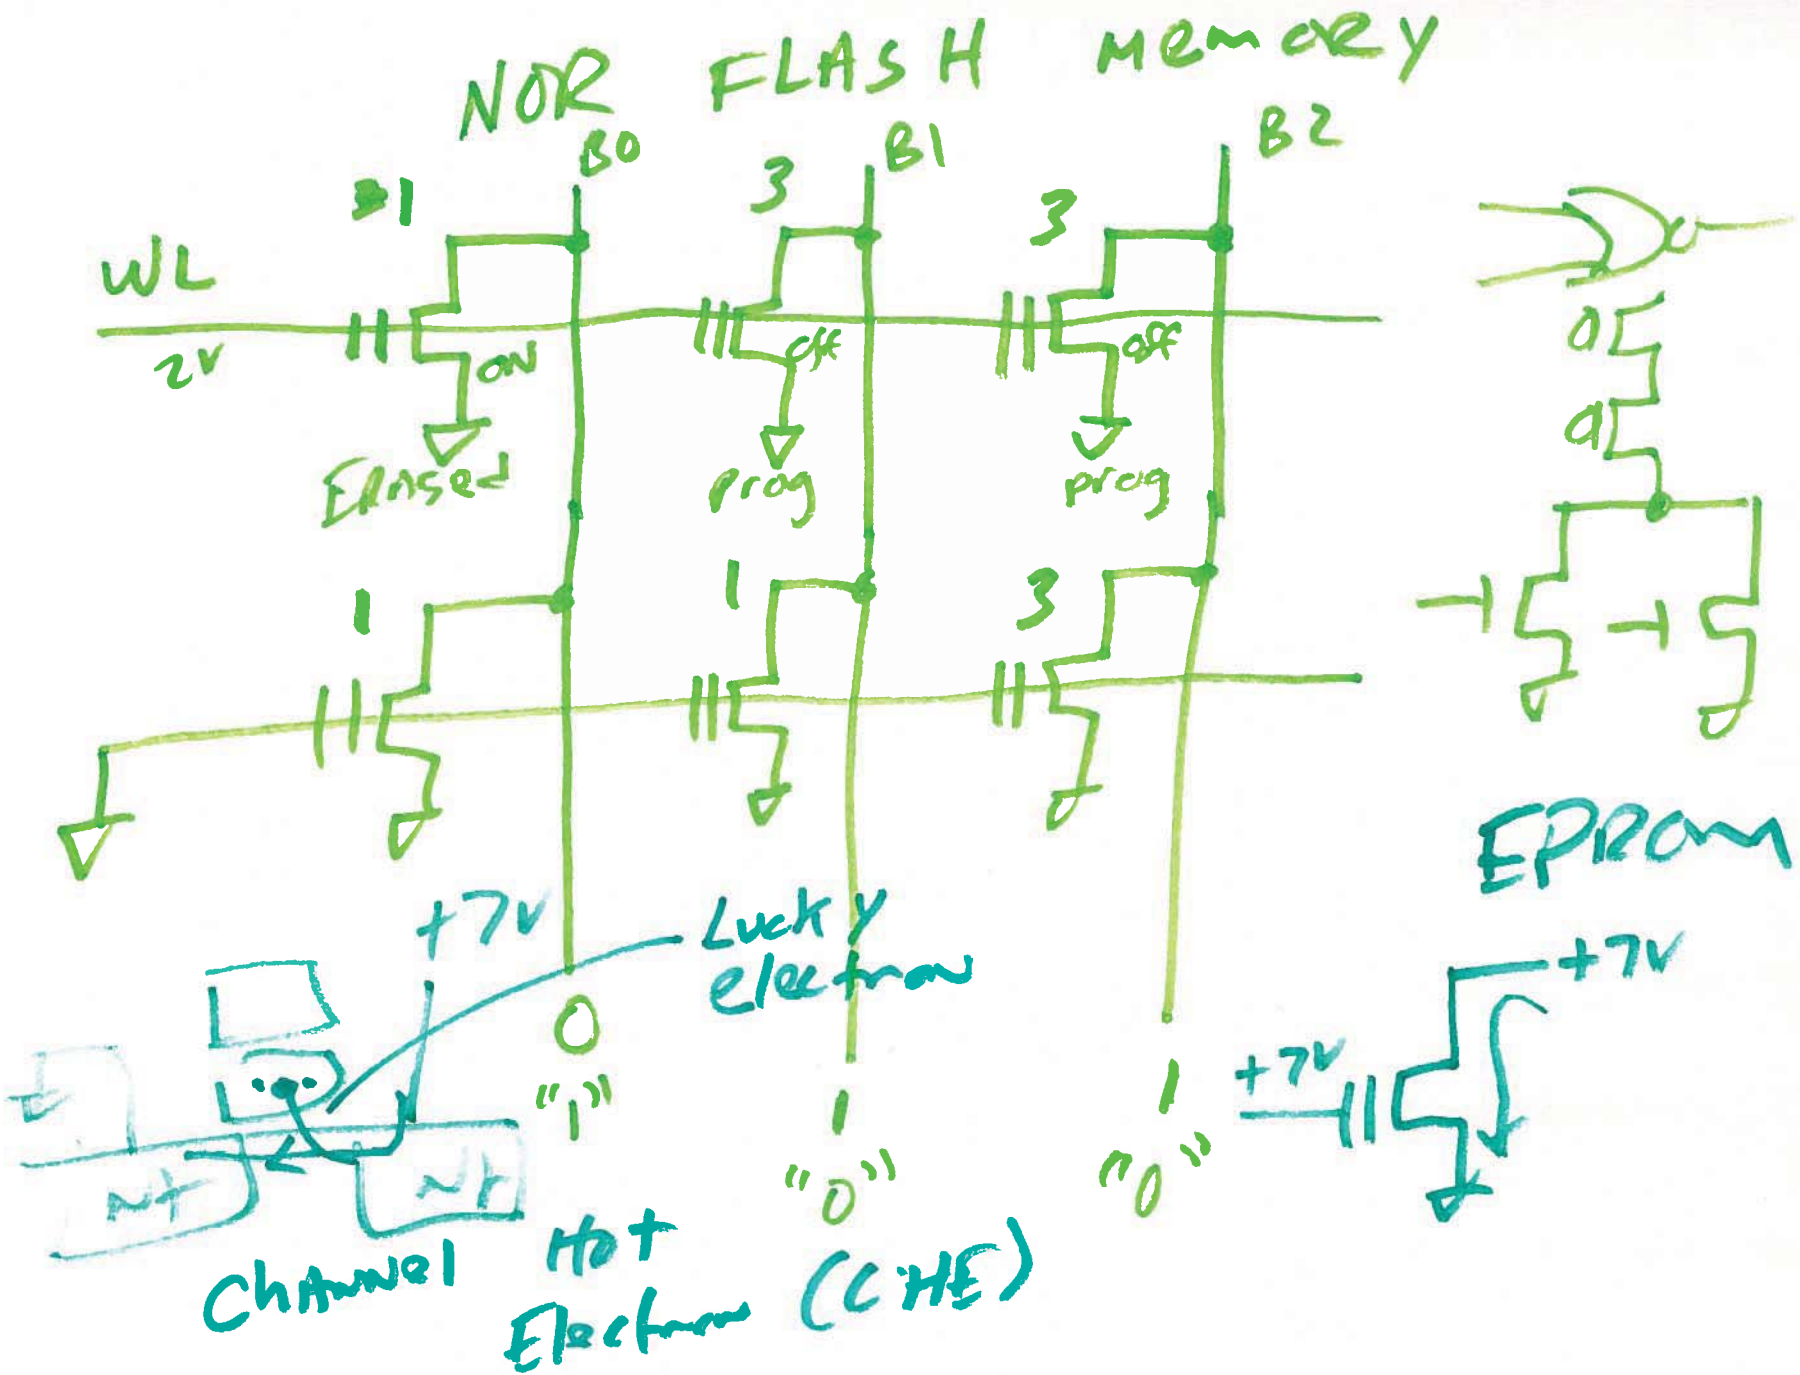 NOR FLASH MEMORY
B0 B1 B2
1 3 3
WL
2V
ON off off
Erased prog prog
1 1 3
EPROM
+7V Lucky
electron
+7V
0
+7V
"1" 1 1
"0" "0"
N+ N+
Channel Hot
Electron (CHE)